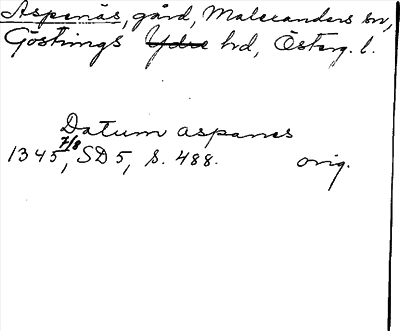 Aspenäs, gård, Malexanders sn,
Göstrings Ydre hd, Österg. l.
Datum aspanes
1345 7/8, SD 5, s. 488. orig.